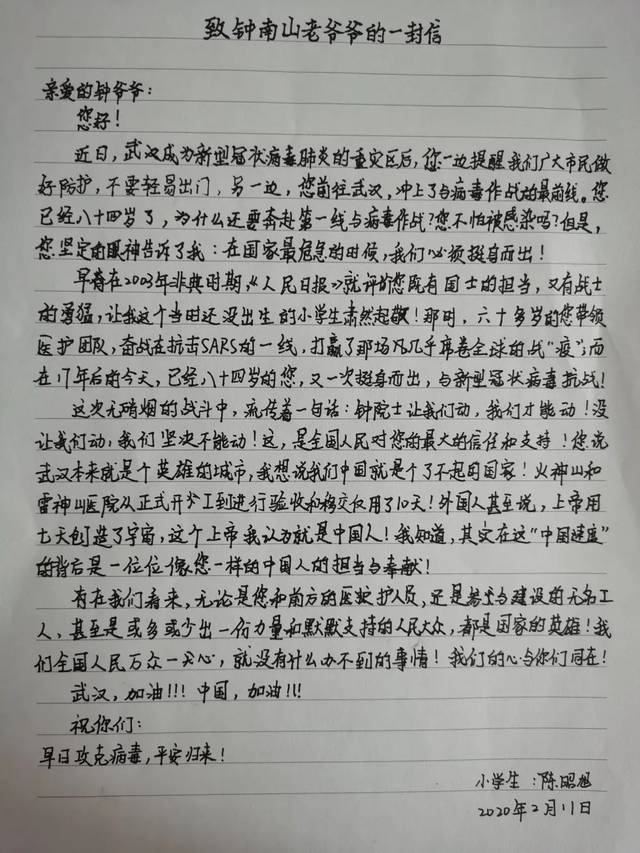 致钟南山老爷爷的一封信
亲爱的钟爷爷：
您好！
近日，武汉成为新型冠状病毒肺炎的重灾区后，您一边提醒我们广大市民做
好防护，不要轻易出门，另一边，您前往武汉，冲上了与病毒作战的最前线。您
已经八十四岁了，为什么还要奔赴第一线与病毒作战？您不怕被感染吗？但是，
您坚定的眼神告诉了我：在国家最危急的时候，我们必须挺身而出！
早春在2003年非典时期，《人民日报》就评价您既有国士的担当，又有战士
的勇猛，让我这个当时还没出生的小学生肃然起敬！那时，六十多岁的您带领
医护团队，奋战在抗击SARS的一线，打赢了那场几几乎席卷全球的战“疫”；而
在17年后的今天，已经八十四岁的您，又一次挺身而出，与新型冠状病毒抗战！
这次无硝烟的战斗中，流传着一句话：钟院士让我们动，我们才能动！没
让我们动，我们坚决不能动！这，是全国人民对您的最大的信任和支持！您说
武汉本来就是个英雄的城市，我想说我们中国就是个了不起的国家！火神山和
雷神山医院从正式开工到进行验收和移交仅用了10天！外国人甚至说，上帝用
七天创造了宇宙，这个上帝我认为就是中国人！我知道，其实在这“中国速度”
的背后是一位位像您一样的中国人的担当与奉献！
有在我们看来，无论是您和前方的医护人员，还是参与建设的无名工
人，甚至是或多或少出一份力量和默默支持的人民大众，都是国家的英雄！我
们全国人民万众一心，就没有什么办不到的事情！我们的心与你们同在！
武汉，加油！！！中国，加油！！！
祝你们：
早日攻克病毒，平安归来！
小学生：陈昭旭
2020年2月11日